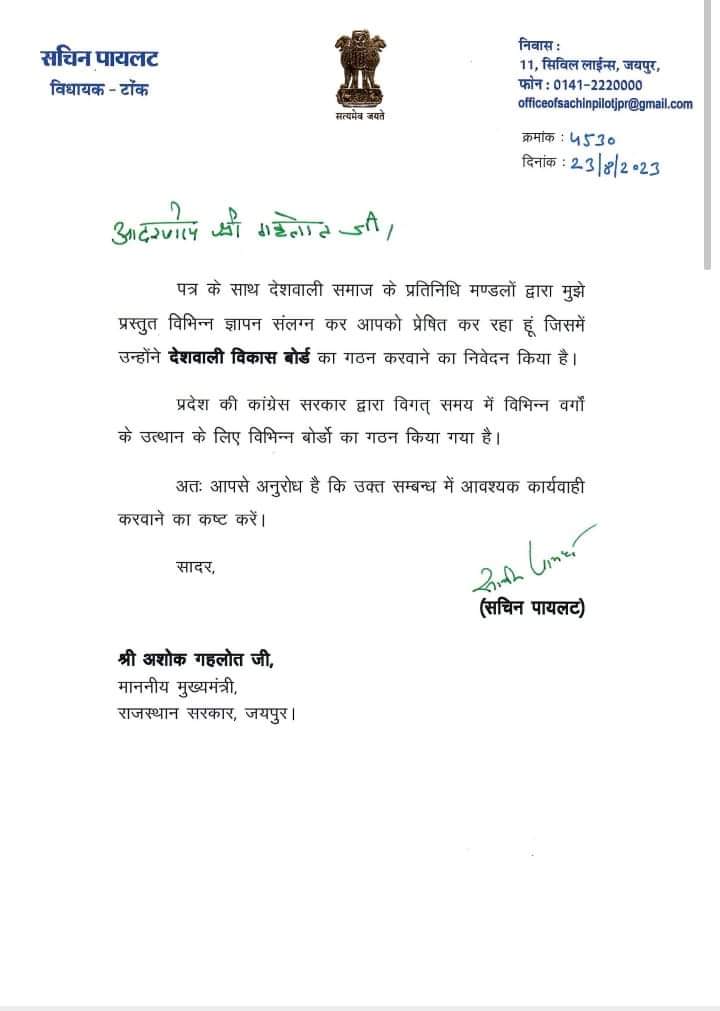 सचिन पायलट
विधायक - टोंक
सत्यमेव जयते
निवास :
11, सिविल लाईन्स, जयपुर,
फोन : 0141-2220000
officeofsachinpilotjpr@gmail.com
क्रमांक : ५530
दिनांक : 23/8/2023
आदरणीय श्री गहलोत जी,
पत्र के साथ देशवाली समाज के प्रतिनिधि मण्डलों द्वारा मुझे
प्रस्तुत विभिन्न ज्ञापन संलग्न कर आपको प्रेषित कर रहा हूं जिसमें
उन्होंने देशवाली विकास बोर्ड का गठन करवाने का निवेदन किया है।
प्रदेश की कांग्रेस सरकार द्वारा विगत् समय में विभिन्न वर्गों
के उत्थान के लिए विभिन्न बोर्डो का गठन किया गया है।
अतः आपसे अनुरोध है कि उक्त सम्बन्ध में आवश्यक कार्यवाही
करवाने का कष्ट करें।
सादर,
(सचिन पायलट)
श्री अशोक गहलोत जी,
माननीय मुख्यमंत्री,
राजस्थान सरकार, जयपुर।